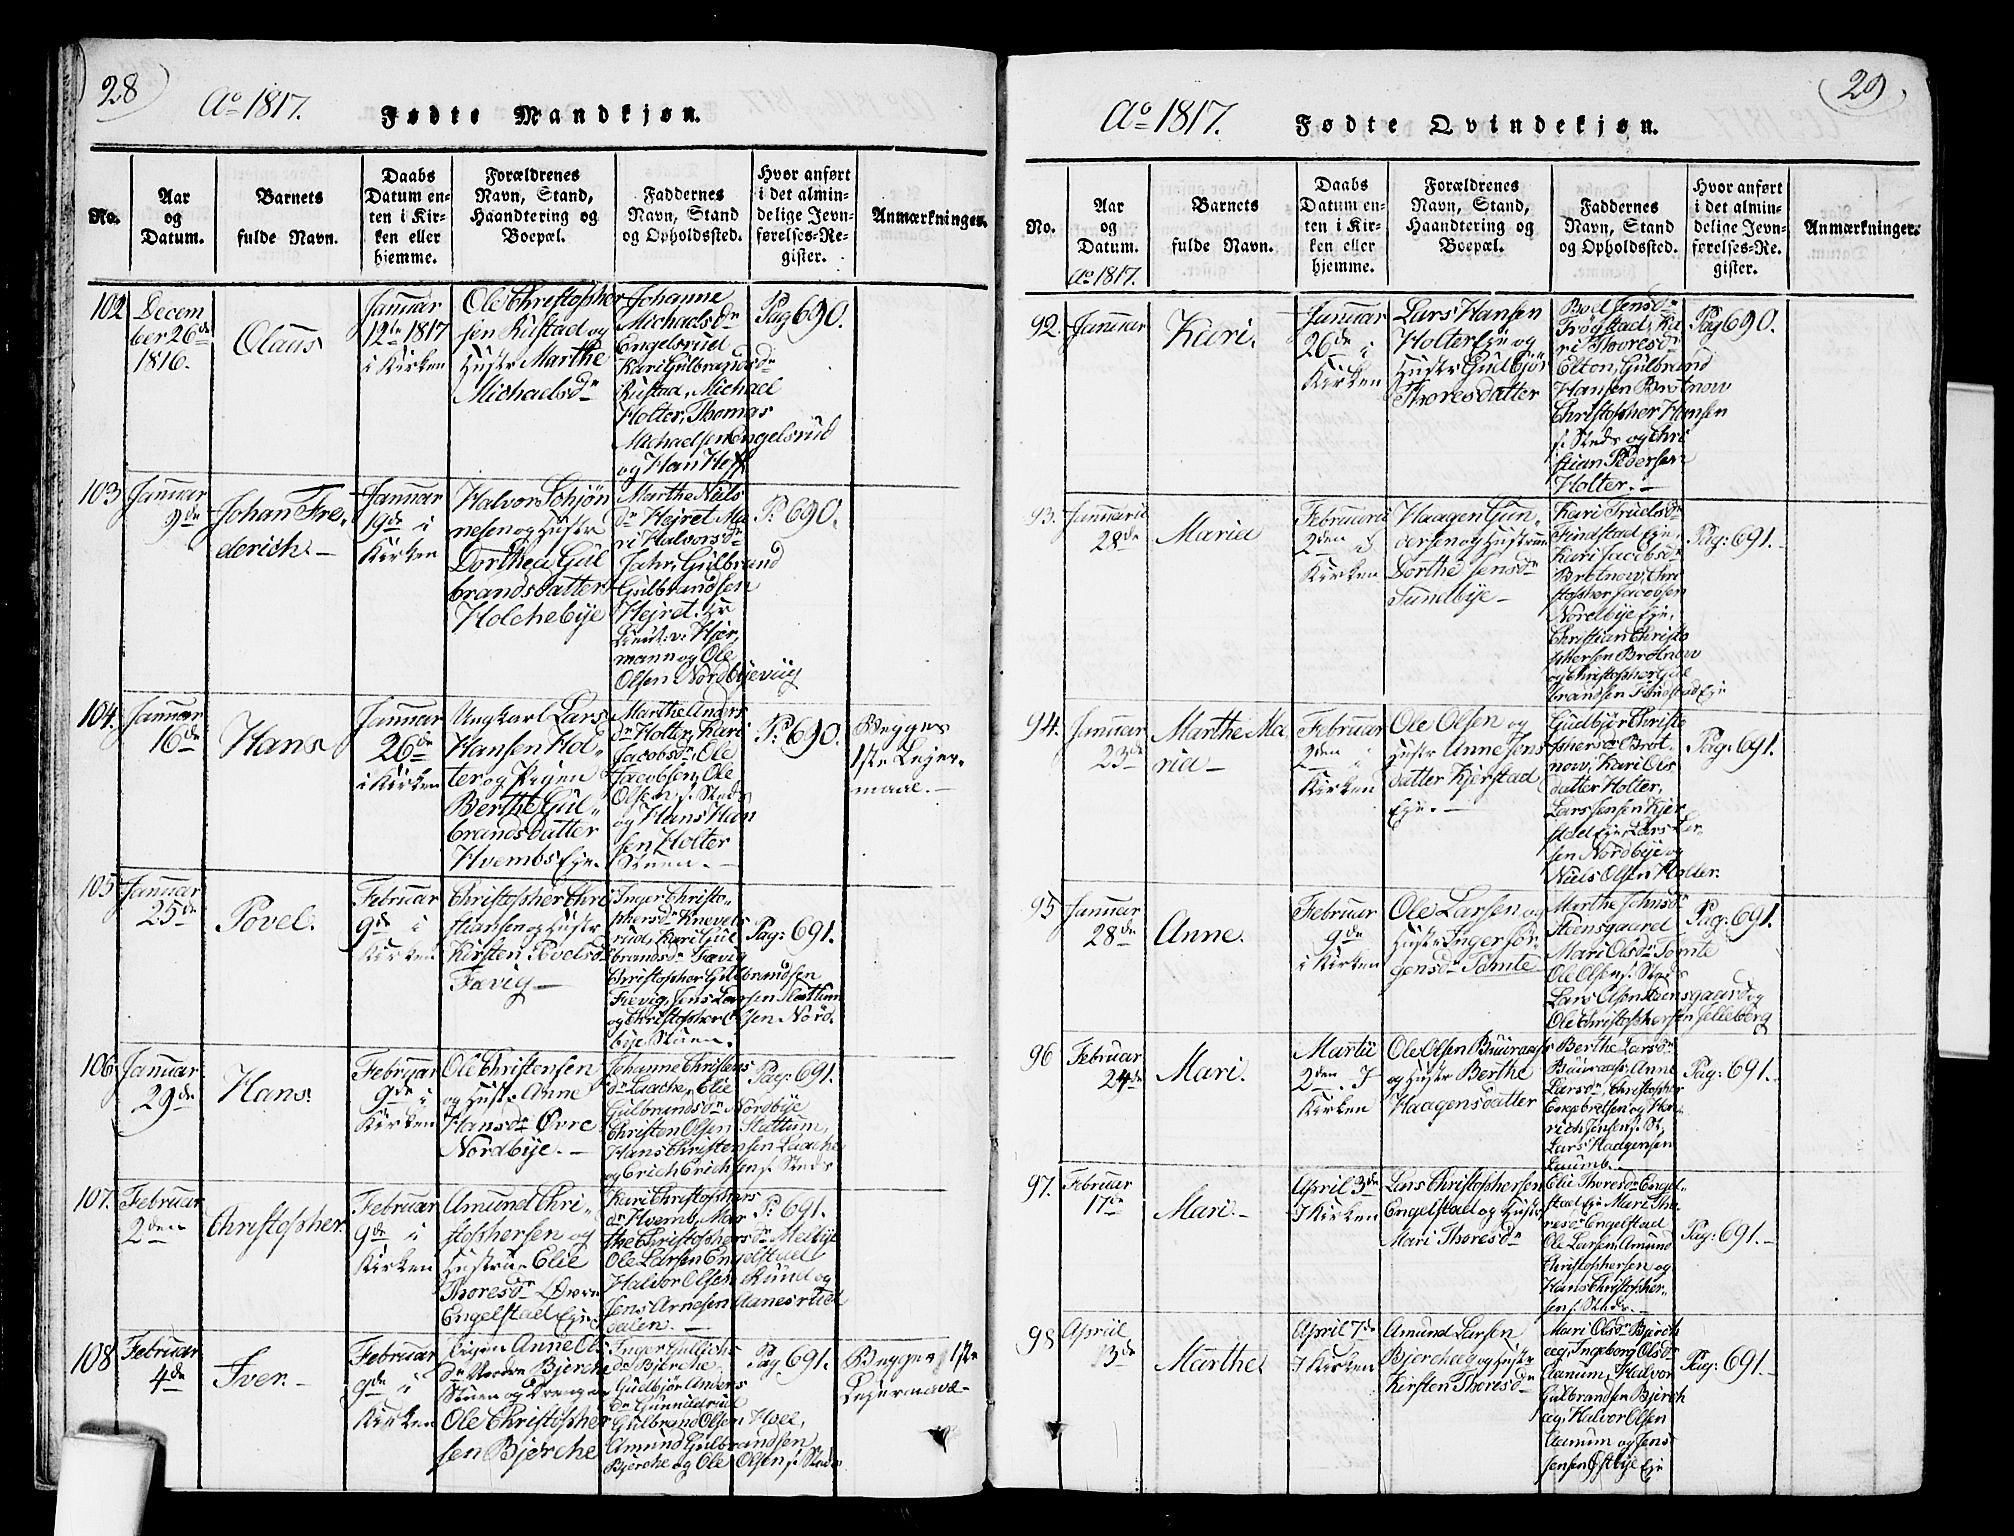 28
Ao 1817.
Fødte Mandkjøn.
No.
Aar
og
Datum.
Barnets
fulde Navn.
Daabs
Datum en-
ten i Kir-
ken eller
hjemme.
Forældrenes
Navn, Stand,
Haandtering og
Boepæl.
Faddernes
Navn, Stand
og Opholdssted.
Hvor anført
i det almin-
delige Jevn-
førelses-Re-
gister.
Anmærkninger.
102
Decem
ber 26de
1816.
Olaus
Januar
12te 1817
i Kirken
Ole Christopher
sen Rustad og
Hustr Marthe
Michaelsdr
Johanne
Michaelsdr
Engelsrud
Kari Gulbrandsdr
Rustad, Michael
Holter, Thomas
Michaelsen Engelsrud
og Han Hoff
Pag 690.
103
Januar
9de
Johan Fre-
derich –
Januar
19de i
Kirken
Halvor Schjön
nesen og Hustr
Dorthea Gul
brandsdatter
Holchebye
Marthe Niels
dr Hejret Ma
ri Halvorsdr
Jahr, Gulbrand
Gulbrandsen
Hejret, Hr
Lieut. v. Hjer
mann og Ole
Olsen Nordbyevug
P. 690.
104.
Januar
16de
Hans
Januar
26de
i Kirken
Ungkarl Lars
Hansen Hol-
ter og Pigen
Berthe Gul-
brandsdatter
HvembsEje.
Marthe Anders
dr Holter, Kari
Jacobsdr, Ole
Jacobsen, Ole
Olsen f. Steds
og Hans Han
sen Holter
Stuen. –
P. 690.
Begges
1ste Lejer-
maal. –
105
Januar
25de
Povel.
Februar
9de i
Kirken
Christopher Chri
stiansen og Hustr
Kirsten Povelsdr
Fævig –
Inger Christo-
phersdr Knevels
rud, Kari Gul
brandsdr Fævig
Christopher Gulbrandsen
Fævig, Jens Larsen Slattum
og Christopher Olsen Nord-
bye Stuen. –
Pag: 691.
106.
Januar
29de
Hans.
Februar
9de i
Kirken
Ole Christensen
og Hust. Anne
Hansdr Øvre
Nordbye. –
Johanne Christens
dr Laache, Elie
Gulbrandsdr Nordbye
Christen Olsen Slattum,
Hans Christensen Laache
og Erich Erichsen f. Steds
Pag: 691.
107.
Februar
2den
Christopher.
Februar
9de i
Kirken
Amund Chri-
stophersen og
Hustru Elie
Thoresdr Øvre
Engelstad Eje
Kari Christophers
dr Hvemb, Mar
the Christophersdr Melbye
Ole Larsen Engelstad
Halvor Olsen Rund og
Jens Arnesen Aanesrud
dalen. –
P. 691.
108
Februar
4de
Iver. –
Februar
9de i
Kirken
Pigen Anne Ols
dr Nordre Bjerche
Stuen og Drengen
Ole Christopher
sen Bjerche
Inger Gullichs
dr Bjerche,
Gudbjør Anders
dr Gunnelrud
Gulbrand Olsen Hoel,
Amund Gulbrandsen
Bjerche og Ole Olsen f. Steds
Pag 691.
Begges 1ste
Lejermaal-
29
Ao 1817.
Fødte Qvindekjøn.
No.
Aar
og
Datum.
Ao 1817.
Barnets
fulde Navn.
Daabs
Datum en-
ten i Kir-
ken eller
hjemme.
Forældrenes
Navn, Stand,
Haandtering og
Boepæl.
Faddernes
Navn, Stand
og Opholdssted.
Hvor anført
i det almin-
delige Jevn-
førelses-Re-
gister.
Anmærkninger.
92.
Januar
Kari.
Januar
26de i
Kirken
Lars Hansen
HolterEje og
Hustr Gulbjör
Thoresdatter
Boel Jensdr
Frogstad, Ka
ri Thoresdr
Elton, Gulbrand
Hansen Brotnow
Christopher Hansen
f. Steds og Chri
stian Pedersen
Holter. –
Pag 690.
93.
Januarii
28de
Maria
Februarii
2den I
Kirken
Haagen Gun-
dersen og Hustrue
Dorthe Jensdr
Sundbye –
Kari Truelsdr
Findstad Eje,
Kari Jacobsdr
Brotnow, Chri
stopher Jacobsen
Nordbye Eje,
Christian Christo
phersen Brotnow
og Christopher Gul
brandsen Findstad Eje
Pag: 691.
94.
Januar
23de
Marthe Ma
ria –
Februar
2den i
Kirken
Ole Olsen og
Hustr Anne Jens
datter Kjerstad
Eje. –
Gudbjør Christo
phersdr Brot-
now, Kari Ols
datter Holter,
Lars Jensen Kjer
stad Eje, Lars Lar-
sen Nordbye og
Niels Olsen Holter.
Pag: 691.
95
Januar
28de
Anne.
Februar
9de
i Kirken
Ole Larsen og
Hustr Inger Jör-
gensdr Tomte
Marthe Johnsdr
Steensgaard
Mari Olsdr Tomte
Ole Olsen f. Steds
Lars Olsen Steensgaard og
Ole Christophersen Felleberg
Pag: 691.
96
Februar
24de
Mari.
Martii
2den I
Kirken
Ole Olsen Buuraas
og Hustr Berthe
Haagensdatter
Berthe Larsdr
Buuraas, Anne
Larsdr, Christopher
Engebretsen og Hen-
rich Jensen f. St.
Lars Haagensen
Laumb. –
Pag: 691.
97.
Februar
17de
Mari. –
April 3de
I Kirken
Lars Christophersen
Engelstad og Hustr
Mari Thoresdr
Elie Thoresdr Engel-
stad Eje Mari Tho-
resdr Engelstad
Ole Larsen, Amund
Christophersen og
Hans Christopher-
sen f. Steds. –
Pag: 691. –
98
April
13de
Marthe.
April 7de
I Kirken
Amund Larsen
Bjerchaag og Hustr
Kirsten Thoresdr
Mari Olsdr Bjerch
aag, Ingeborg Olsdr
Aamum, Halvor
Gulbrandsen Bjerch
aag, Halvor Olsen
Aamum og Jens
Jensen Østbye Eje
Pag: 691. –